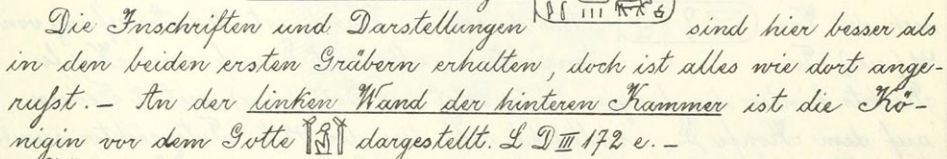 Die Inschriften und Darstellungen sind hier besser als
in den beiden ersten Gräbern erhalten, doch ist alles wie dort ange-
rußt. – An der linken Wand der hinteren Kammer ist die Kö-
nigin vor dem Gotte dargestellt. L D III 172 e. –